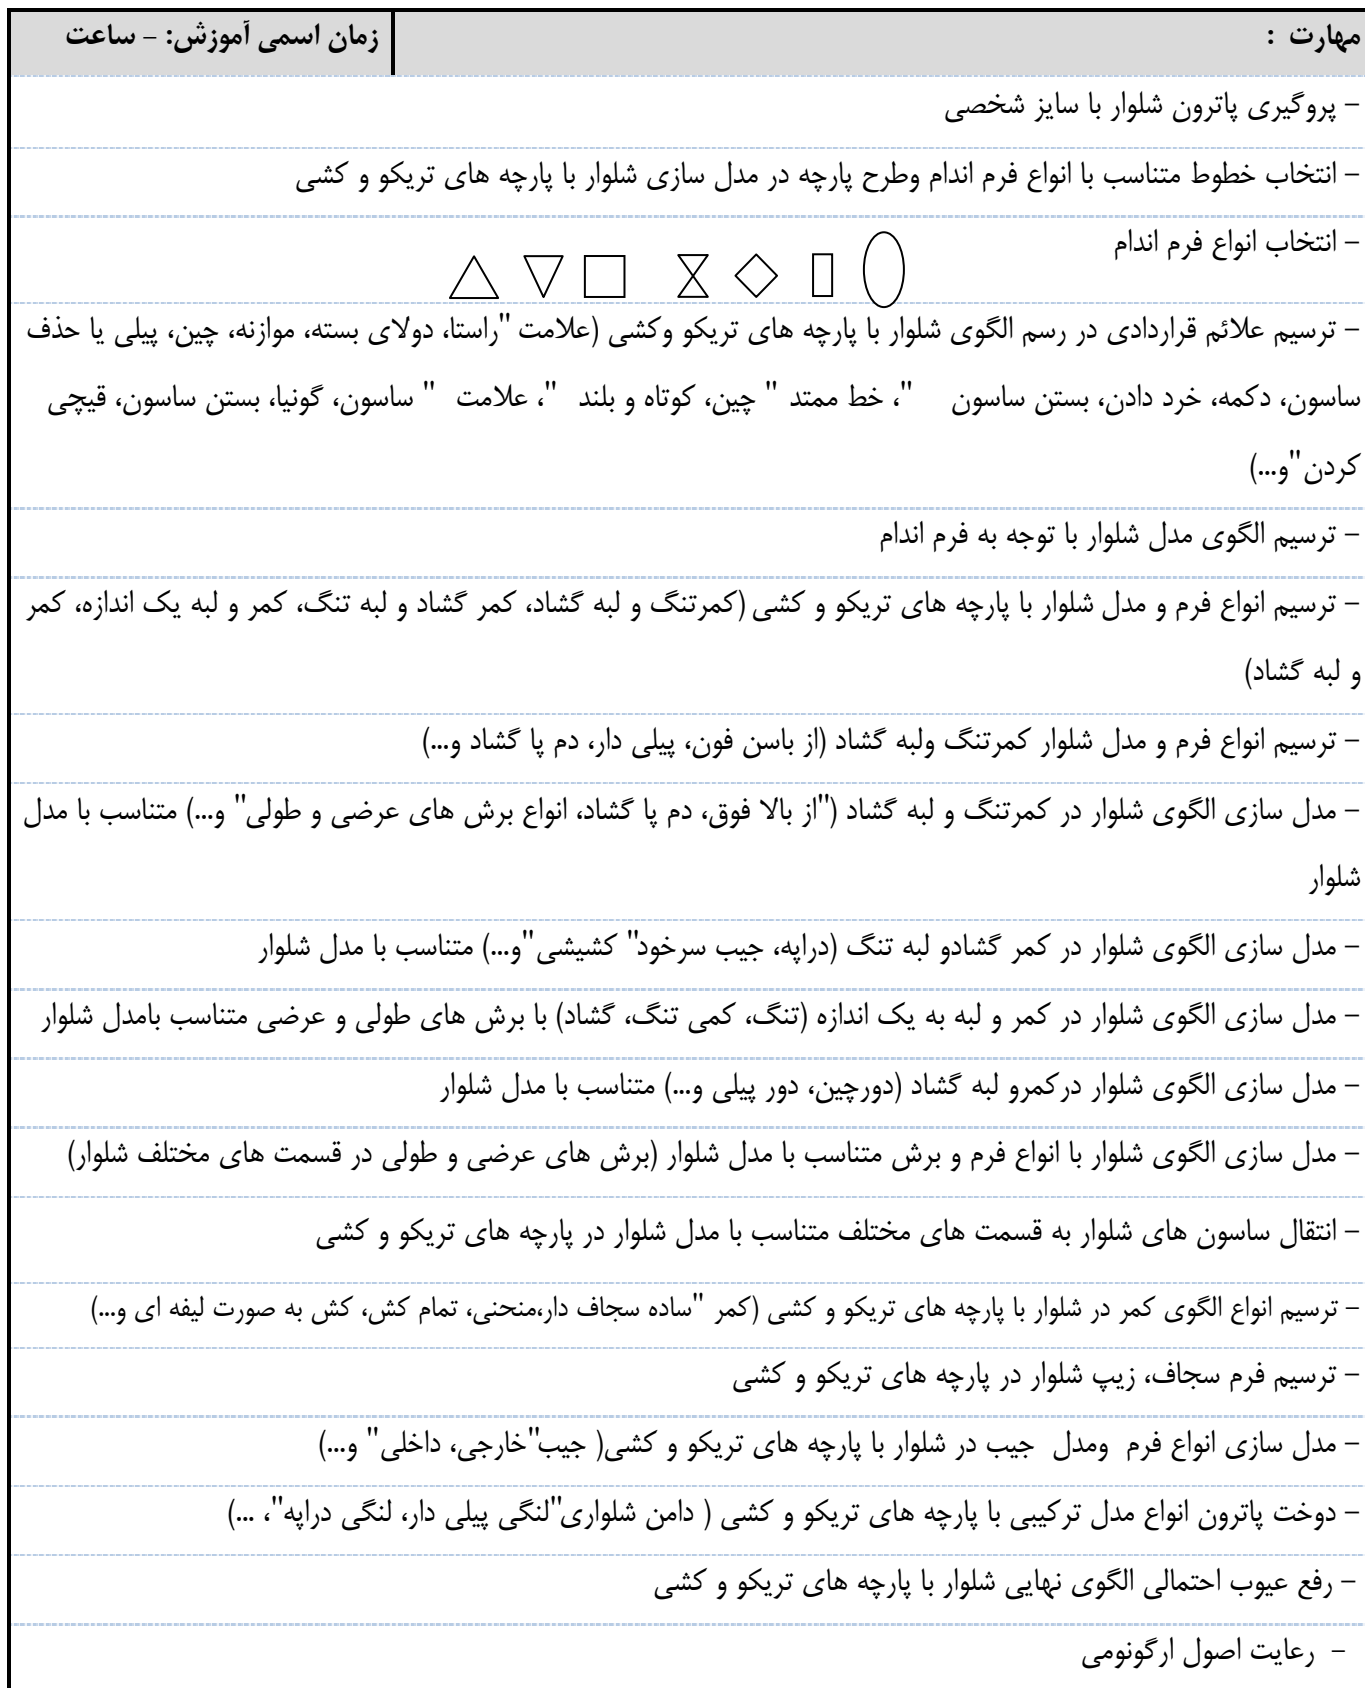 مهارت :
زمان اسمی آموزش: – ساعت
– پروگیری پاترون شلوار با سایز شخصی
– انتخاب خطوط متناسب با انواع فرم اندام وطرح پارچه در مدل سازی شلوار با پارچه های تریکو و کشی
– انتخاب انواع فرم اندام
– ترسیم علائم قراردادی در رسم الگوی شلوار با پارچه های تریکو وکشی (علامت "راستا، دولای بسته، موازنه، چین، پیلی یا حذف
ساسون، دکمه، خرد دادن، بستن ساسون "، خط ممتد " چین، کوتاه و بلند "، علامت " ساسون، گونیا، بستن ساسون، قیچی
کردن"و...)
– ترسیم الگوی مدل شلوار با توجه به فرم اندام
– ترسیم انواع فرم و مدل شلوار با پارچه های تریکو و کشی (کمرتنگ و لبه گشاد، کمر گشاد و لبه تنگ، کمر و لبه یک اندازه، کمر
و لبه گشاد)
– ترسیم انواع فرم و مدل شلوار کمرتنگ ولبه گشاد (از باسن فون، پیلی دار، دم پا گشاد و...)
– مدل سازی الگوی شلوار در کمرتنگ و لبه گشاد ("از بالا فوق، دم پا گشاد، انواع برش های عرضی و طولی" و...) متناسب با مدل
شلوار
– مدل سازی الگوی شلوار در کمر گشادو لبه تنگ (دراپه، جیب سرخود" کشیشی"و...) متناسب با مدل شلوار
– مدل سازی الگوی شلوار در کمر و لبه به یک اندازه (تنگ، کمی تنگ، گشاد) با برش های طولی و عرضی متناسب بامدل شلوار
– مدل سازی الگوی شلوار درکمرو لبه گشاد (دورچین، دور پیلی و...) متناسب با مدل شلوار
– مدل سازی الگوی شلوار با انواع فرم و برش متناسب با مدل شلوار (برش های عرضی و طولی در قسمت های مختلف شلوار)
– انتقال ساسون های شلوار به قسمت های مختلف متناسب با مدل شلوار در پارچه های تریکو و کشی
– ترسیم انواع الگوی کمر در شلوار با پارچه های تریکو و کشی (کمر "ساده سجاف دار،منحنی، تمام کش، کش به صورت لیفه ای و...)
– ترسیم فرم سجاف، زیپ شلوار در پارچه های تریکو و کشی
– مدل سازی انواع فرم ومدل جیب در شلوار با پارچه های تریکو و کشی( جیب"خارجی، داخلی" و...)
– دوخت پاترون انواع مدل ترکیبی با پارچه های تریکو و کشی ( دامن شلواری"لنگی پیلی دار، لنگی دراپه"، ...)
– رفع عیوب احتمالی الگوی نهایی شلوار با پارچه های تریکو و کشی
– رعایت اصول ارگونومی